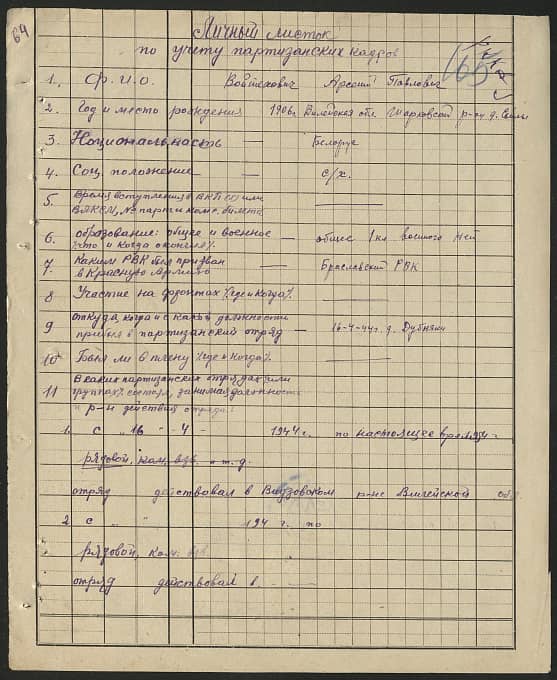 64
Личный листок
по учету партизанских кадров
165
1. Ф.И.О. Войтехович Арсений Павлович
2. Год и место рождения 1906, Вилейская обл. Шарковский р-он д.
3 Национальность — Белорус
4. Соц. положение — с/х.
5 Время вступления в ВКП(б) или
ВЛКСМ, № парт. и комс. билета
6. образование: общее и военное
/что и когда окончил/. — общее 1 кл. военого ней
7. Каким РВК был призван
в Красную Армию — Браславский РВК
8 Участие на фронтах /где и когда/.
9 откуда, когда и с какой должности
прибыл в партизанский отряд — 16-4-44г. д. Дубняки
10 Был ли в плену /где и когда/.
11 В каких партизанских отрядах или
группах состоял, занимая должность
и р-н действий отряда:
1. с „16 „ -4- 1944 г. по настоящее время
рядовой, ком. взв. и т. д.
отряд действовал в Видзовском р-не Вилейской обл.
2 с „ „ 194 г. по
рядовой, ком. взв.
отряд действовал в —